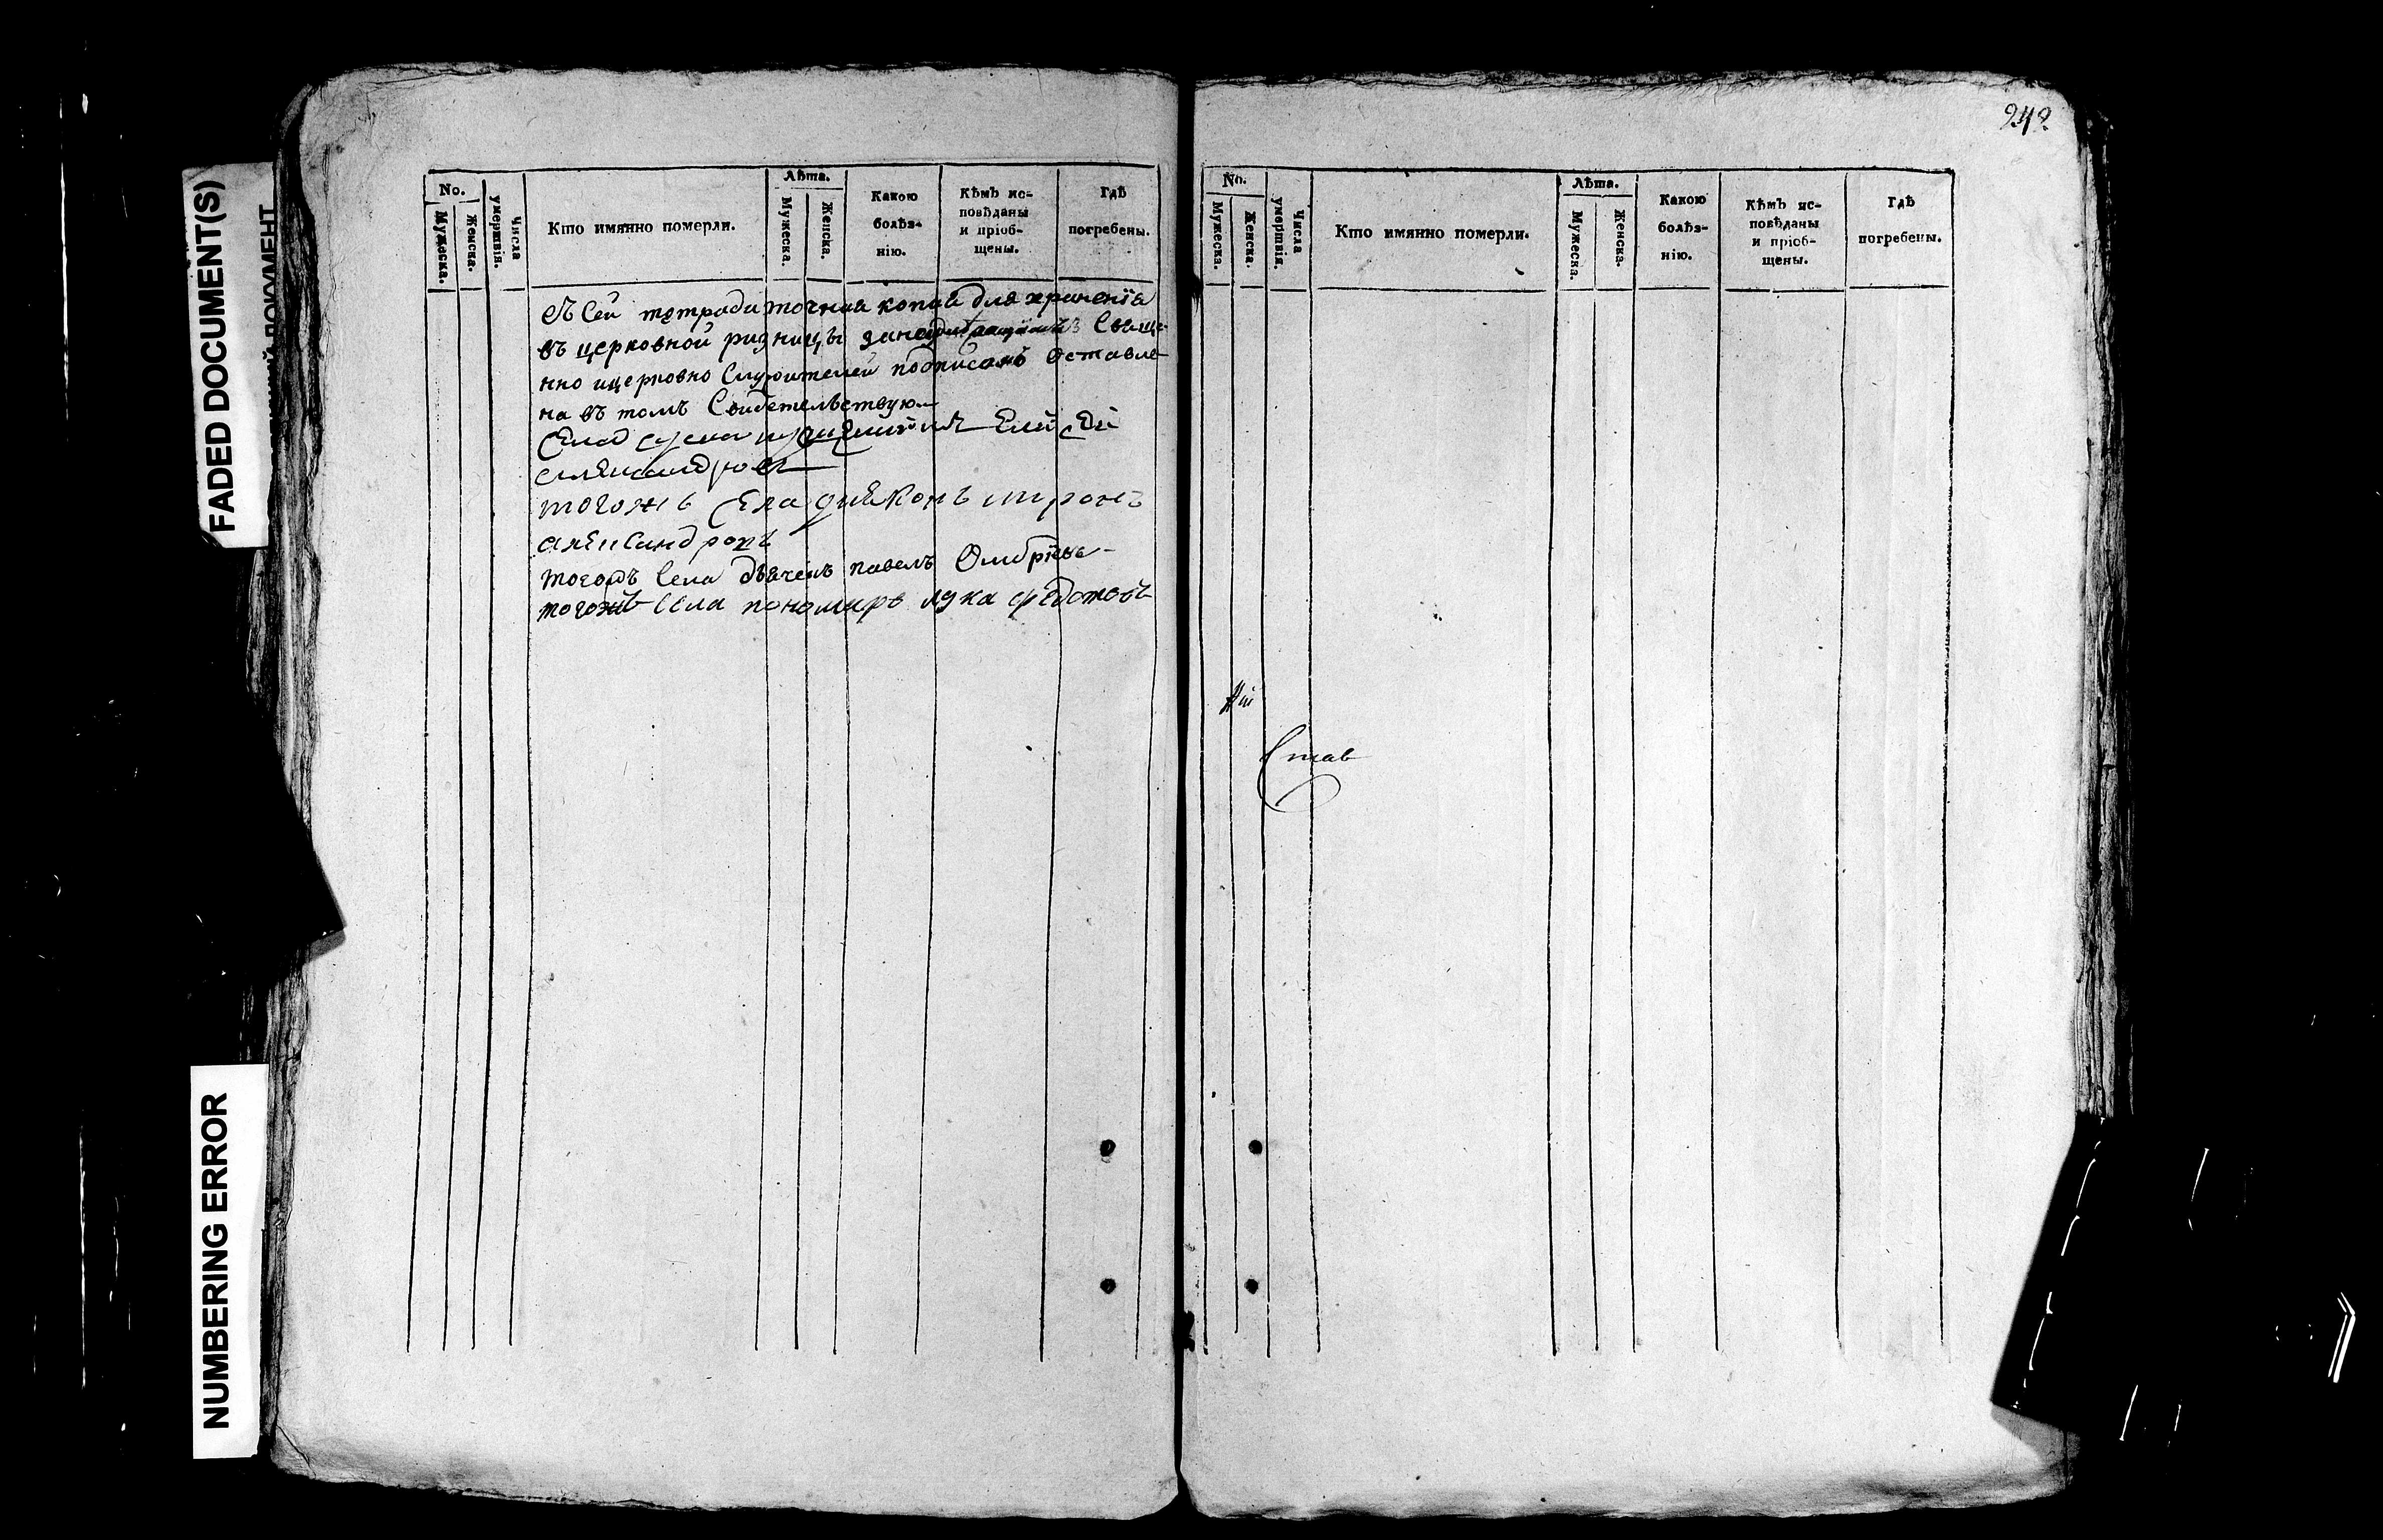 FADED DOCUMENT(S)
NUMBERING ERROR
No.
Мужеска.
Женска.
Числа
умертвія.
Кто имянно померли.
Лѣта.
Мужеска.
Женска.
Какою
болѣз-
нію.
Кѣмъ ис-
повѣданы
и пріоб-
щены.
Гдѣ
погребены.
Сей тетради точная копия для хранения
въ церковной ризницы за Свяще-
нно и церковно Служителей подписомъ Оставле
на въ томъ Свидетельствую
Села Елисей
тогожъ Села дияконъ
александровъ
тогожъ Села дьячекъ павелъ
тогожъ Села пономарь лука
242
No.
Мужеска.
Женска.
Числа
умертвія.
Кто имянно померли.
Лѣта.
Мужеска.
Женска.
Какою
болѣз-
нію.
Кѣмъ ис-
повѣданы
и пріоб-
щены.
Гдѣ
погребены.
Став